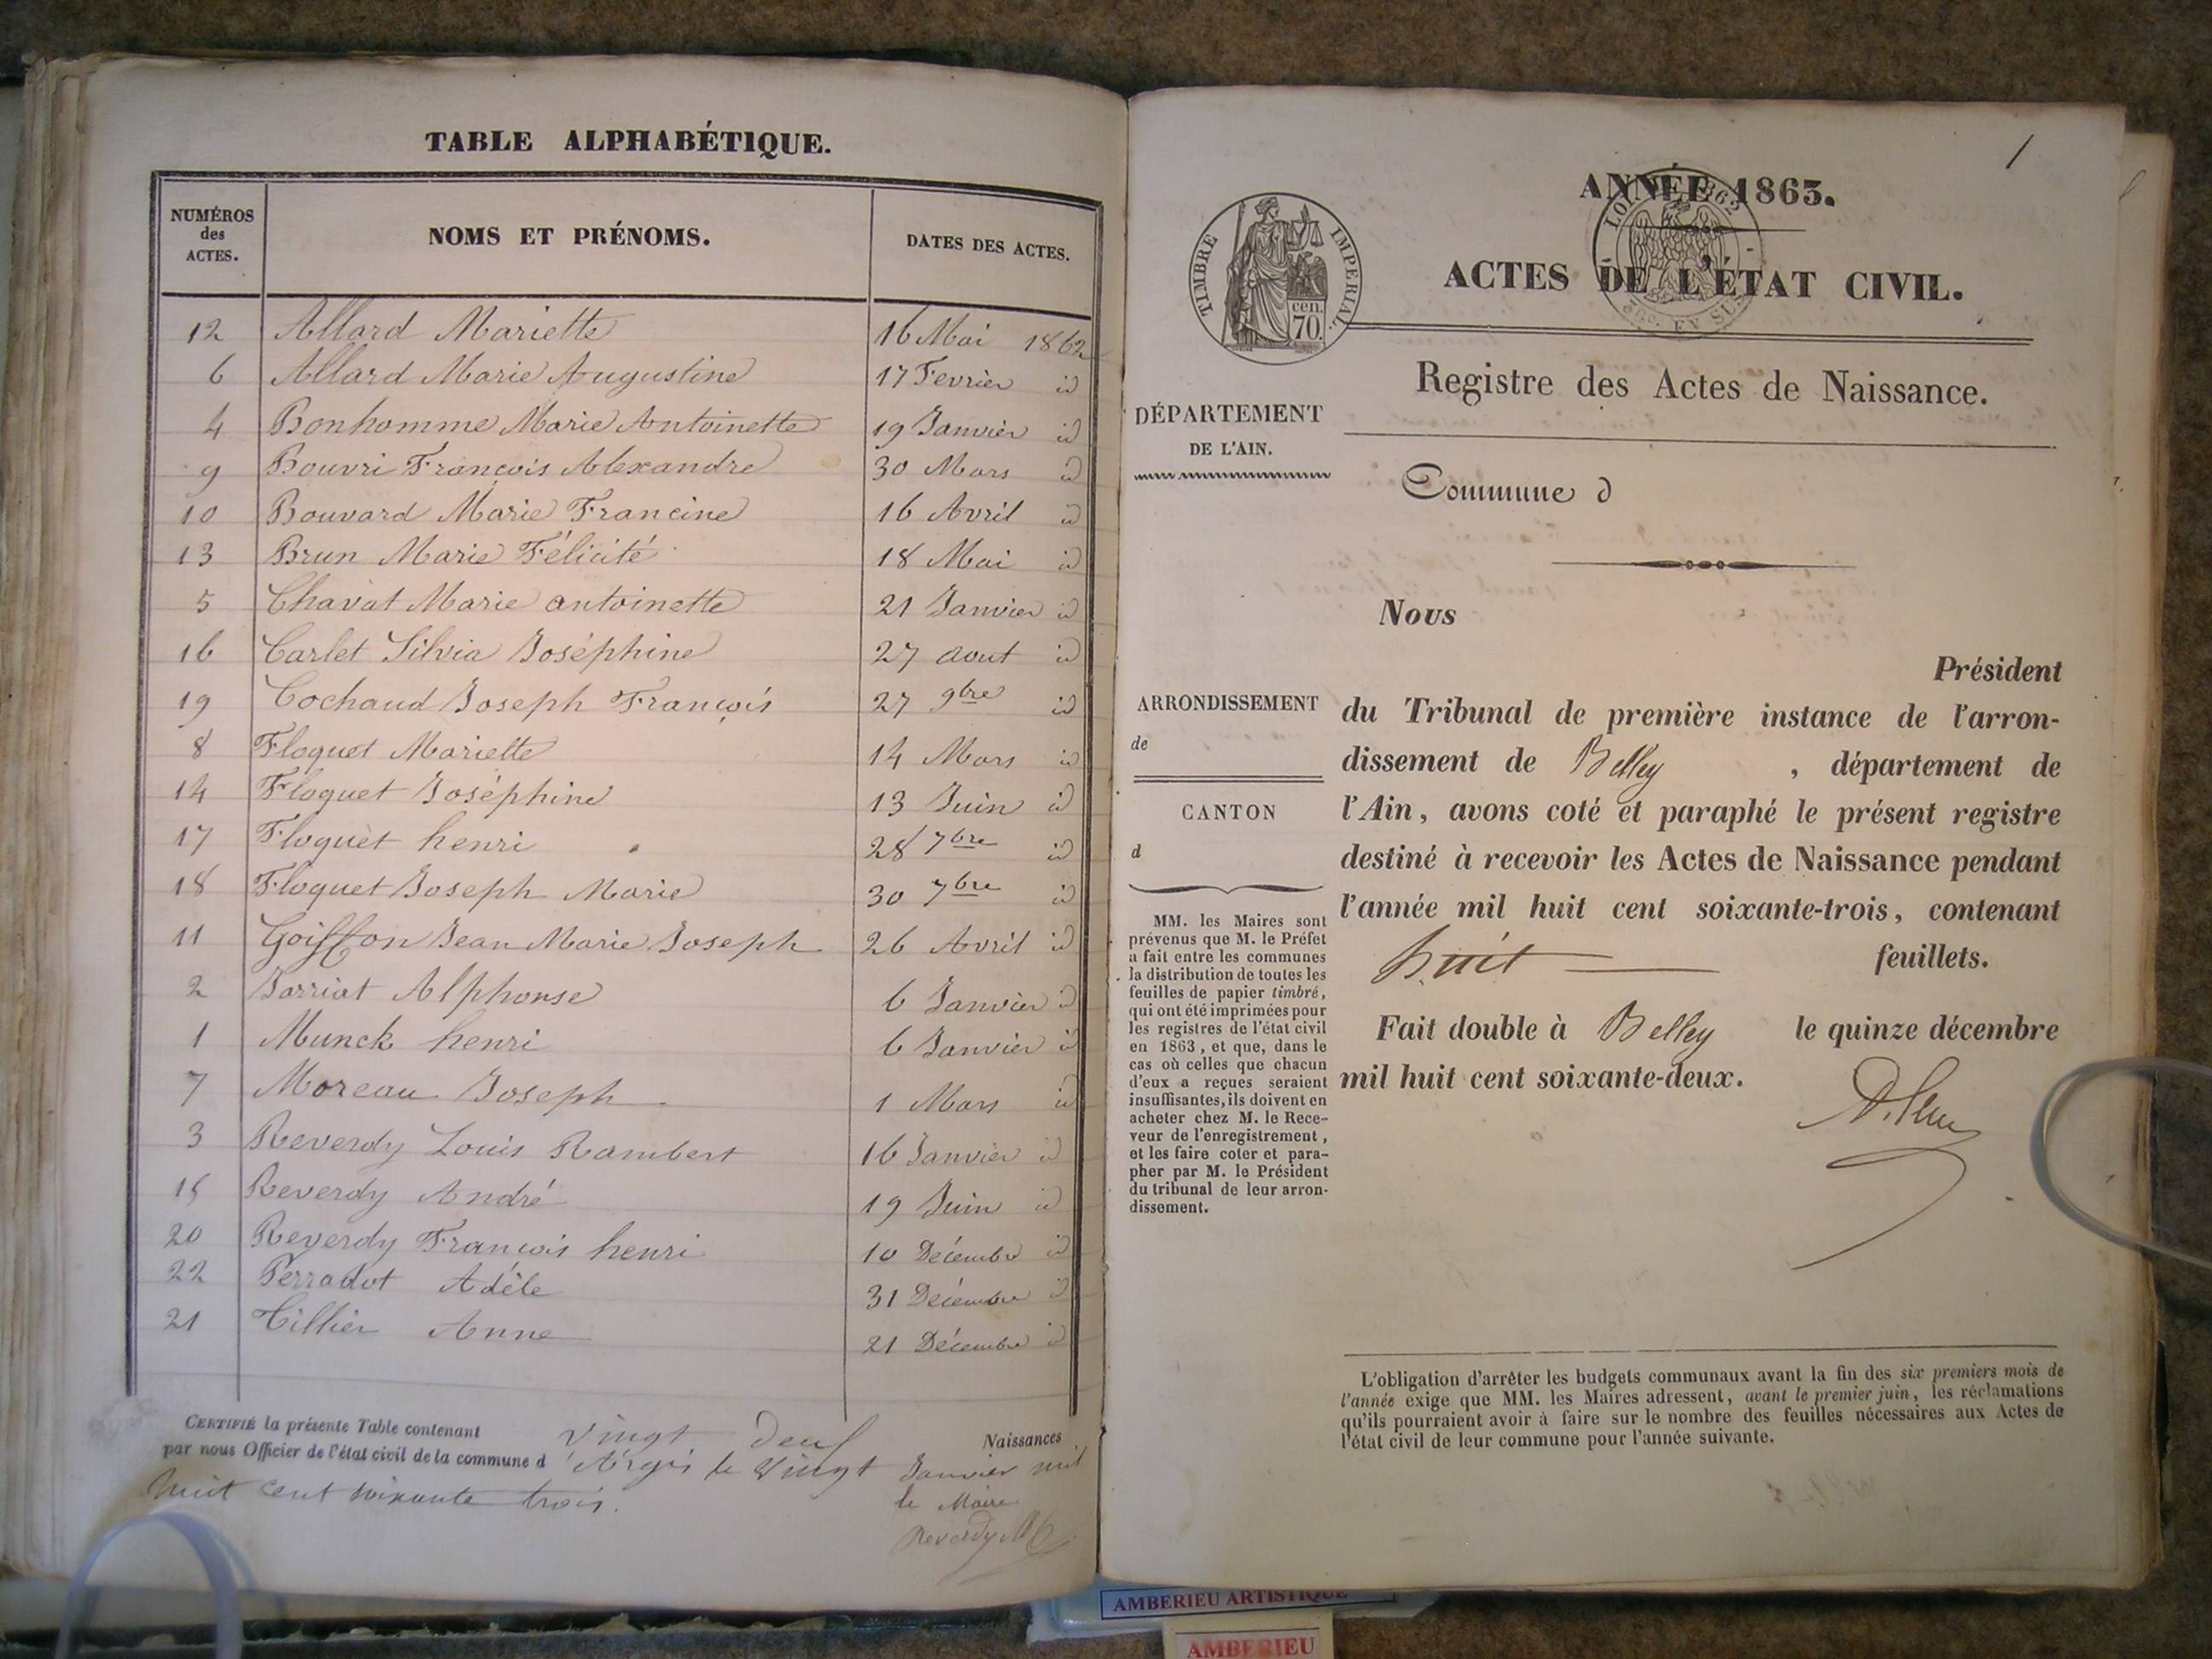 TABLE ALPHABÉTIQUE.
NUMÉROS des ACTES.
NOMS ET PRÉNOMS.
DATES DES ACTES.
12 Allard Mariette 16 Mai 1862
6 Allard Marie Augustine 17 Fevrier id
4 Bonhomme Marie Antoinette 19 Janvier id
9 Bouvri François Alexandre 30 Mars id
10 Bouvard Marie Francine 16 Avril id
13 Brun Marie Félicité 18 Mai id
5 Chavat Marie antoinette 21 Janvier id
16 Carlet Silvia Joséphine 27 aout id
19 Cochaud Joseph François 27 9bre id
8 Floquet Mariette 14 Mars id
14 Floquet Joséphine 13 Juin id
17 Floquet henri 28 7bre id
18 Floquet Joseph Marie 30 7bre id
11 Goiffon Jean Marie Joseph 26 Avril id
2 Jarriat Alphonse 6 Janvier id
1 Munck henri 6 Janvier id
7 Moreau Joseph 1 Mars id
3 Reverdy Louis Rambert 16 Janvier id
15 Reverdy André 19 Juin id
20 Reverdy François henri 10 Décembre id
22 Perradot Adèle 31 Décembre id
21 Tillier Anne 21 Décembre id
CERTIFIÉ la présente Table contenant vingt deux Naissances
par nous Officier de l'état civil de la commune d'Argis le vingt Janvier mil
huit cent soixante trois.
le Maire
Reverdy
1
ANNÉE 1863.
LOI 1862
TIMBRE IMPERIAL.
cen.
70.
EN SUS
ACTES DE L'ÉTAT CIVIL.
Registre des Actes de Naissance.
DÉPARTEMENT
DE L'AIN.
Commune d
Nous
Président
ARRONDISSEMENT
de
CANTON
d
du Tribunal de première instance de l'arron-
dissement de Belley , département de
l'Ain, avons coté et paraphé le présent registre
destiné à recevoir les Actes de Naissance pendant
l'année mil huit cent soixante-trois, contenant
huit feuillets.
Fait double à Belley le quinze décembre
mil huit cent soixante-deux.
MM. les Maires sont
prévenus que M. le Préfet
a fait entre les communes
la distribution de toutes les
feuilles de papier timbré,
qui ont été imprimées pour
les registres de l'état civil
en 1863, et que, dans le
cas où celles que chacun
d'eux a reçues seraient
insuffisantes, ils doivent en
acheter chez M. le Rece-
veur de l'enregistrement,
et les faire coter et para-
pher par M. le Président
du tribunal de leur arron-
dissement.
L'obligation d'arrêter les budgets communaux avant la fin des six premiers mois de
l'année exige que MM. les Maires adressent, avant le premier juin, les réclamations
qu'ils pourraient avoir à faire sur le nombre des feuilles nécessaires aux Actes de
l'état civil de leur commune pour l'année suivante.
AMBERIEU ARTISTIQUE
AMBERIEU